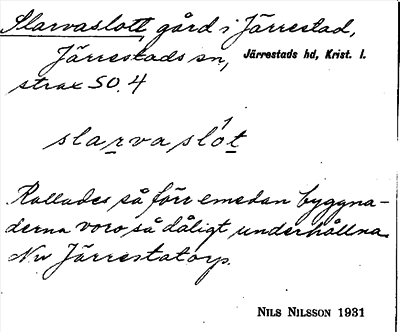 Slarvaslott, gård i Järrestad,
Järrestads sn, Järrestads hd, Krist. l.
strax SO. 4
slarvaslòt
Kallades så förr emedan byggna-
derna voro så dåligt underhållna.
Nu Järrestatorp.
NILS NILSSON 1931